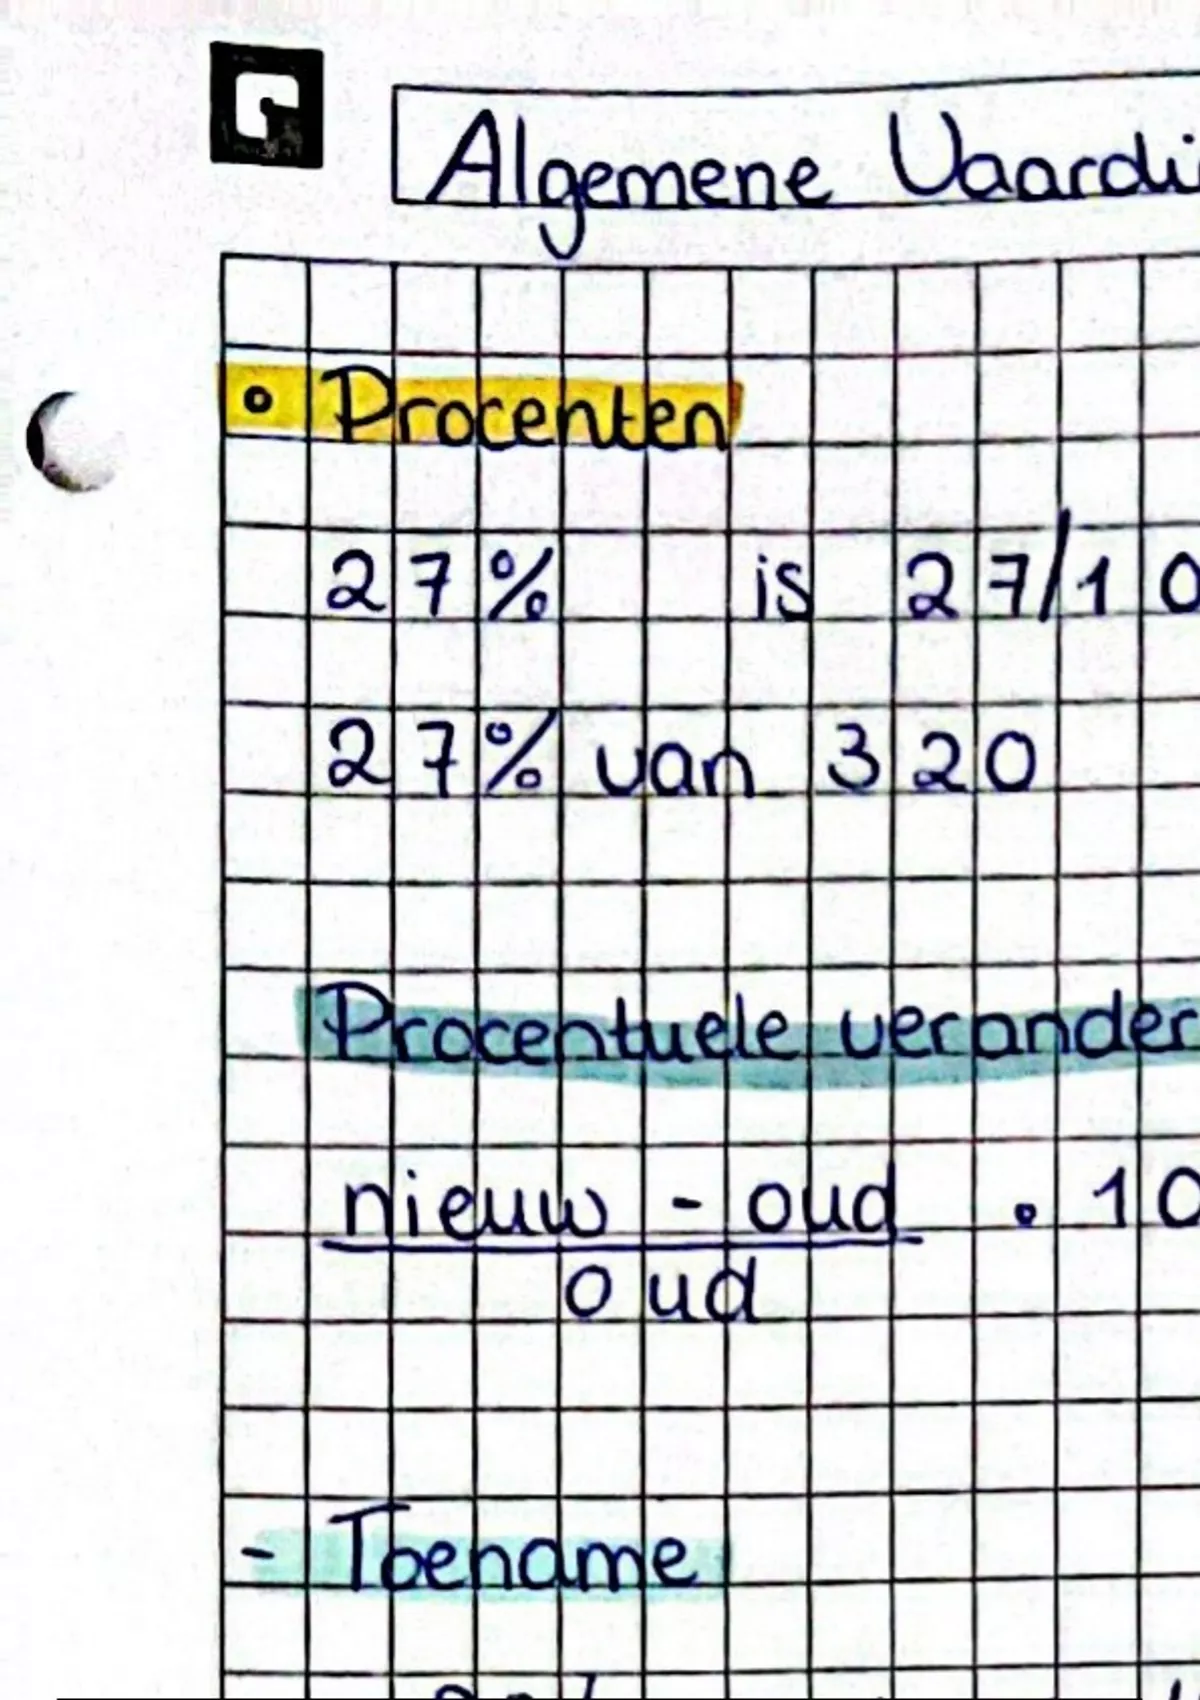 Algemene Vaardi
• Procenten
27% is 27/10
27% van 320
Procentuele verander
nieuw - oud • 10
oud
- Toename